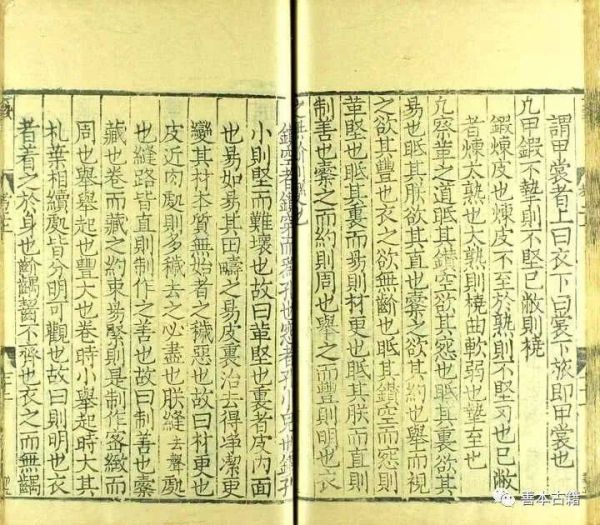 謂甲裳者上曰衣下曰裳下旅即甲裳也
凡甲鍛不摯則不堅已敝則橈
鍛煉皮也煉皮不至於熟則不堅刃也已敝
者煉太熟也太熟則橈曲軟弱也摯至也
凡察革之道眡其鑽空欲其窓也眡其裏欲其
易也眡其朕欲其直也櫜之欲其約也舉而視
之欲其豐也衣之欲無齘也眡其鑽空而窓則
革堅也眡其裏而易則材更也眡其朕而直則
制善也櫜之而約則周也舉之而豐則明也衣
之無齘則變也
鑽空者鑽穿而為孔也窓者孔小皃也鑽孔
小則堅而難壞也故曰革堅也裏者皮内面
也易如易其田疇之易皮裏治去得淨潔更
變其材本質無始者之穢惡也故曰材更也
皮近肉處則多穢去之必盡也朕縫去聲處
也縫路皆直則制作之善也故曰制善也櫜
藏也卷而藏之約束易緊則是制作宻緻而
周也舉舉起也豐大也卷時小舉起時大其
札葉相續處皆分明可觀也故曰則明也衣
者着之於身也齘齟齧不齊也衣之而無齟
善本古籍